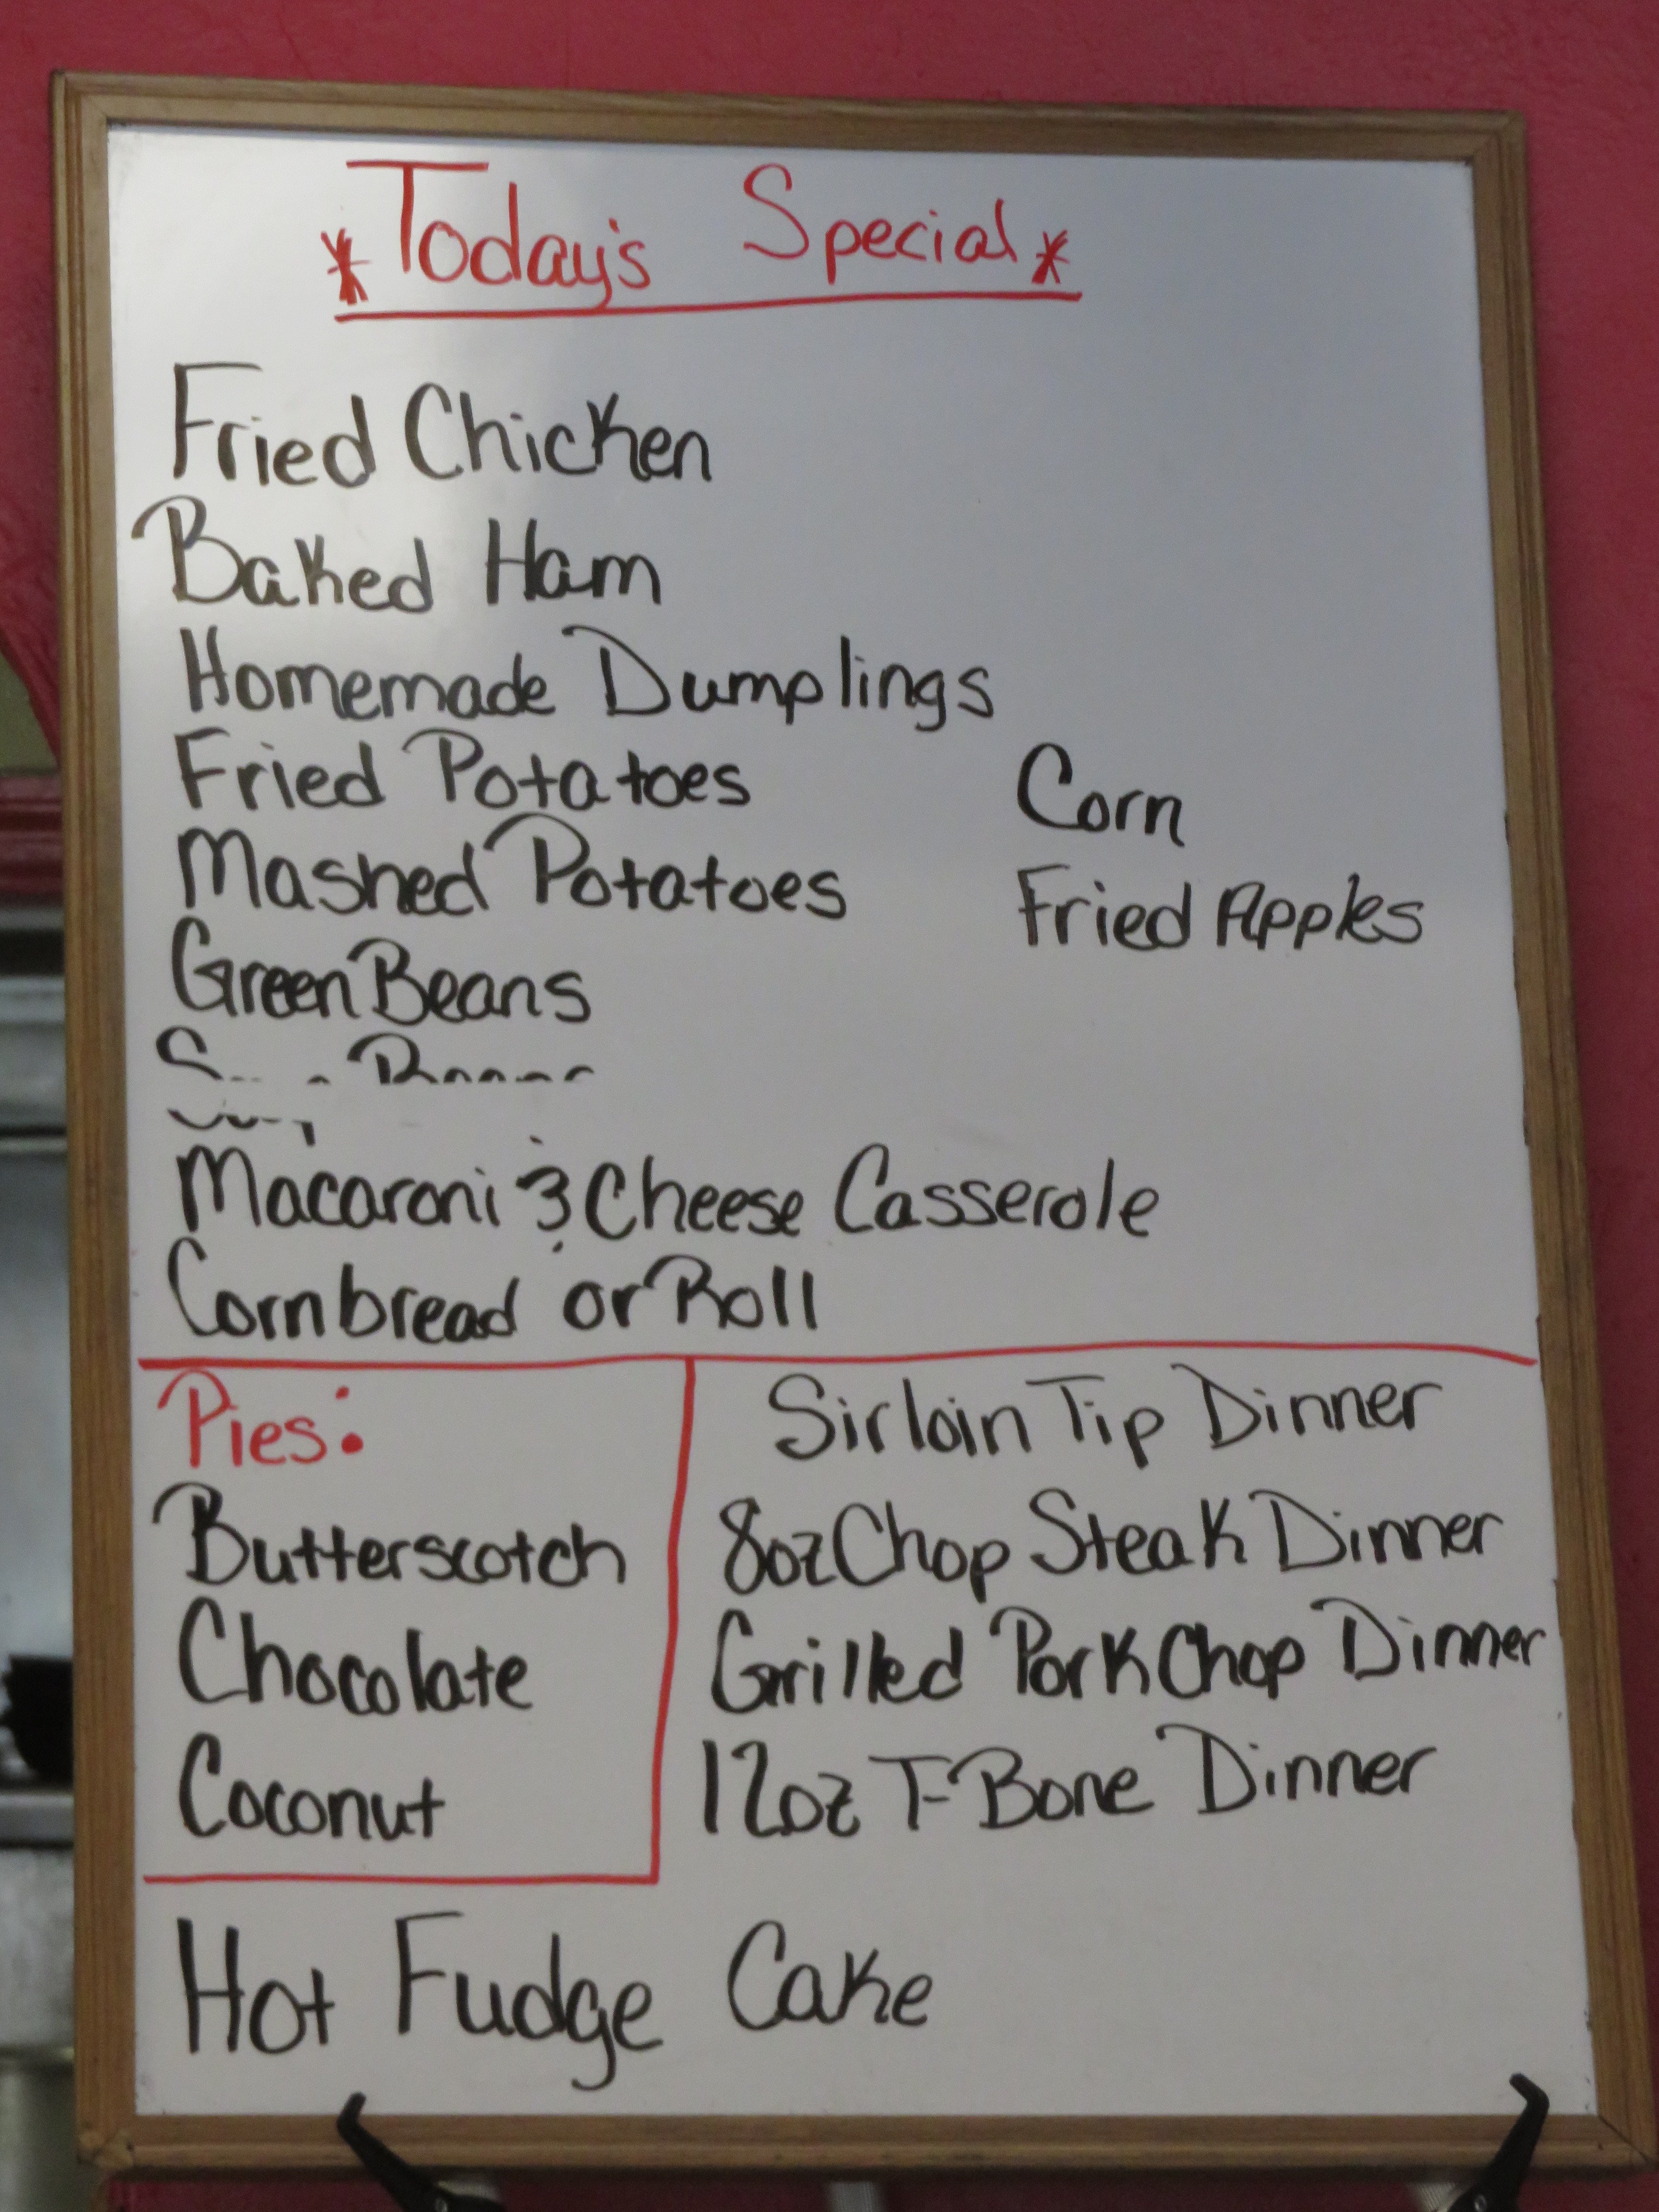 *Today's Special*
Fried Chicken
Baked Ham
Homemade Dumplings
Fried Potatoes
Mashed Potatoes
Green Beans
Corn
Fried Apples
Macaroni & Cheese Casserole
Cornbread or Roll
Pies:
Butterscotch
Chocolate
Coconut
Sirloin Tip Dinner
8oz Chop Steak Dinner
Grilled Pork Chop Dinner
12oz T-Bone Dinner
Hot Fudge Cake